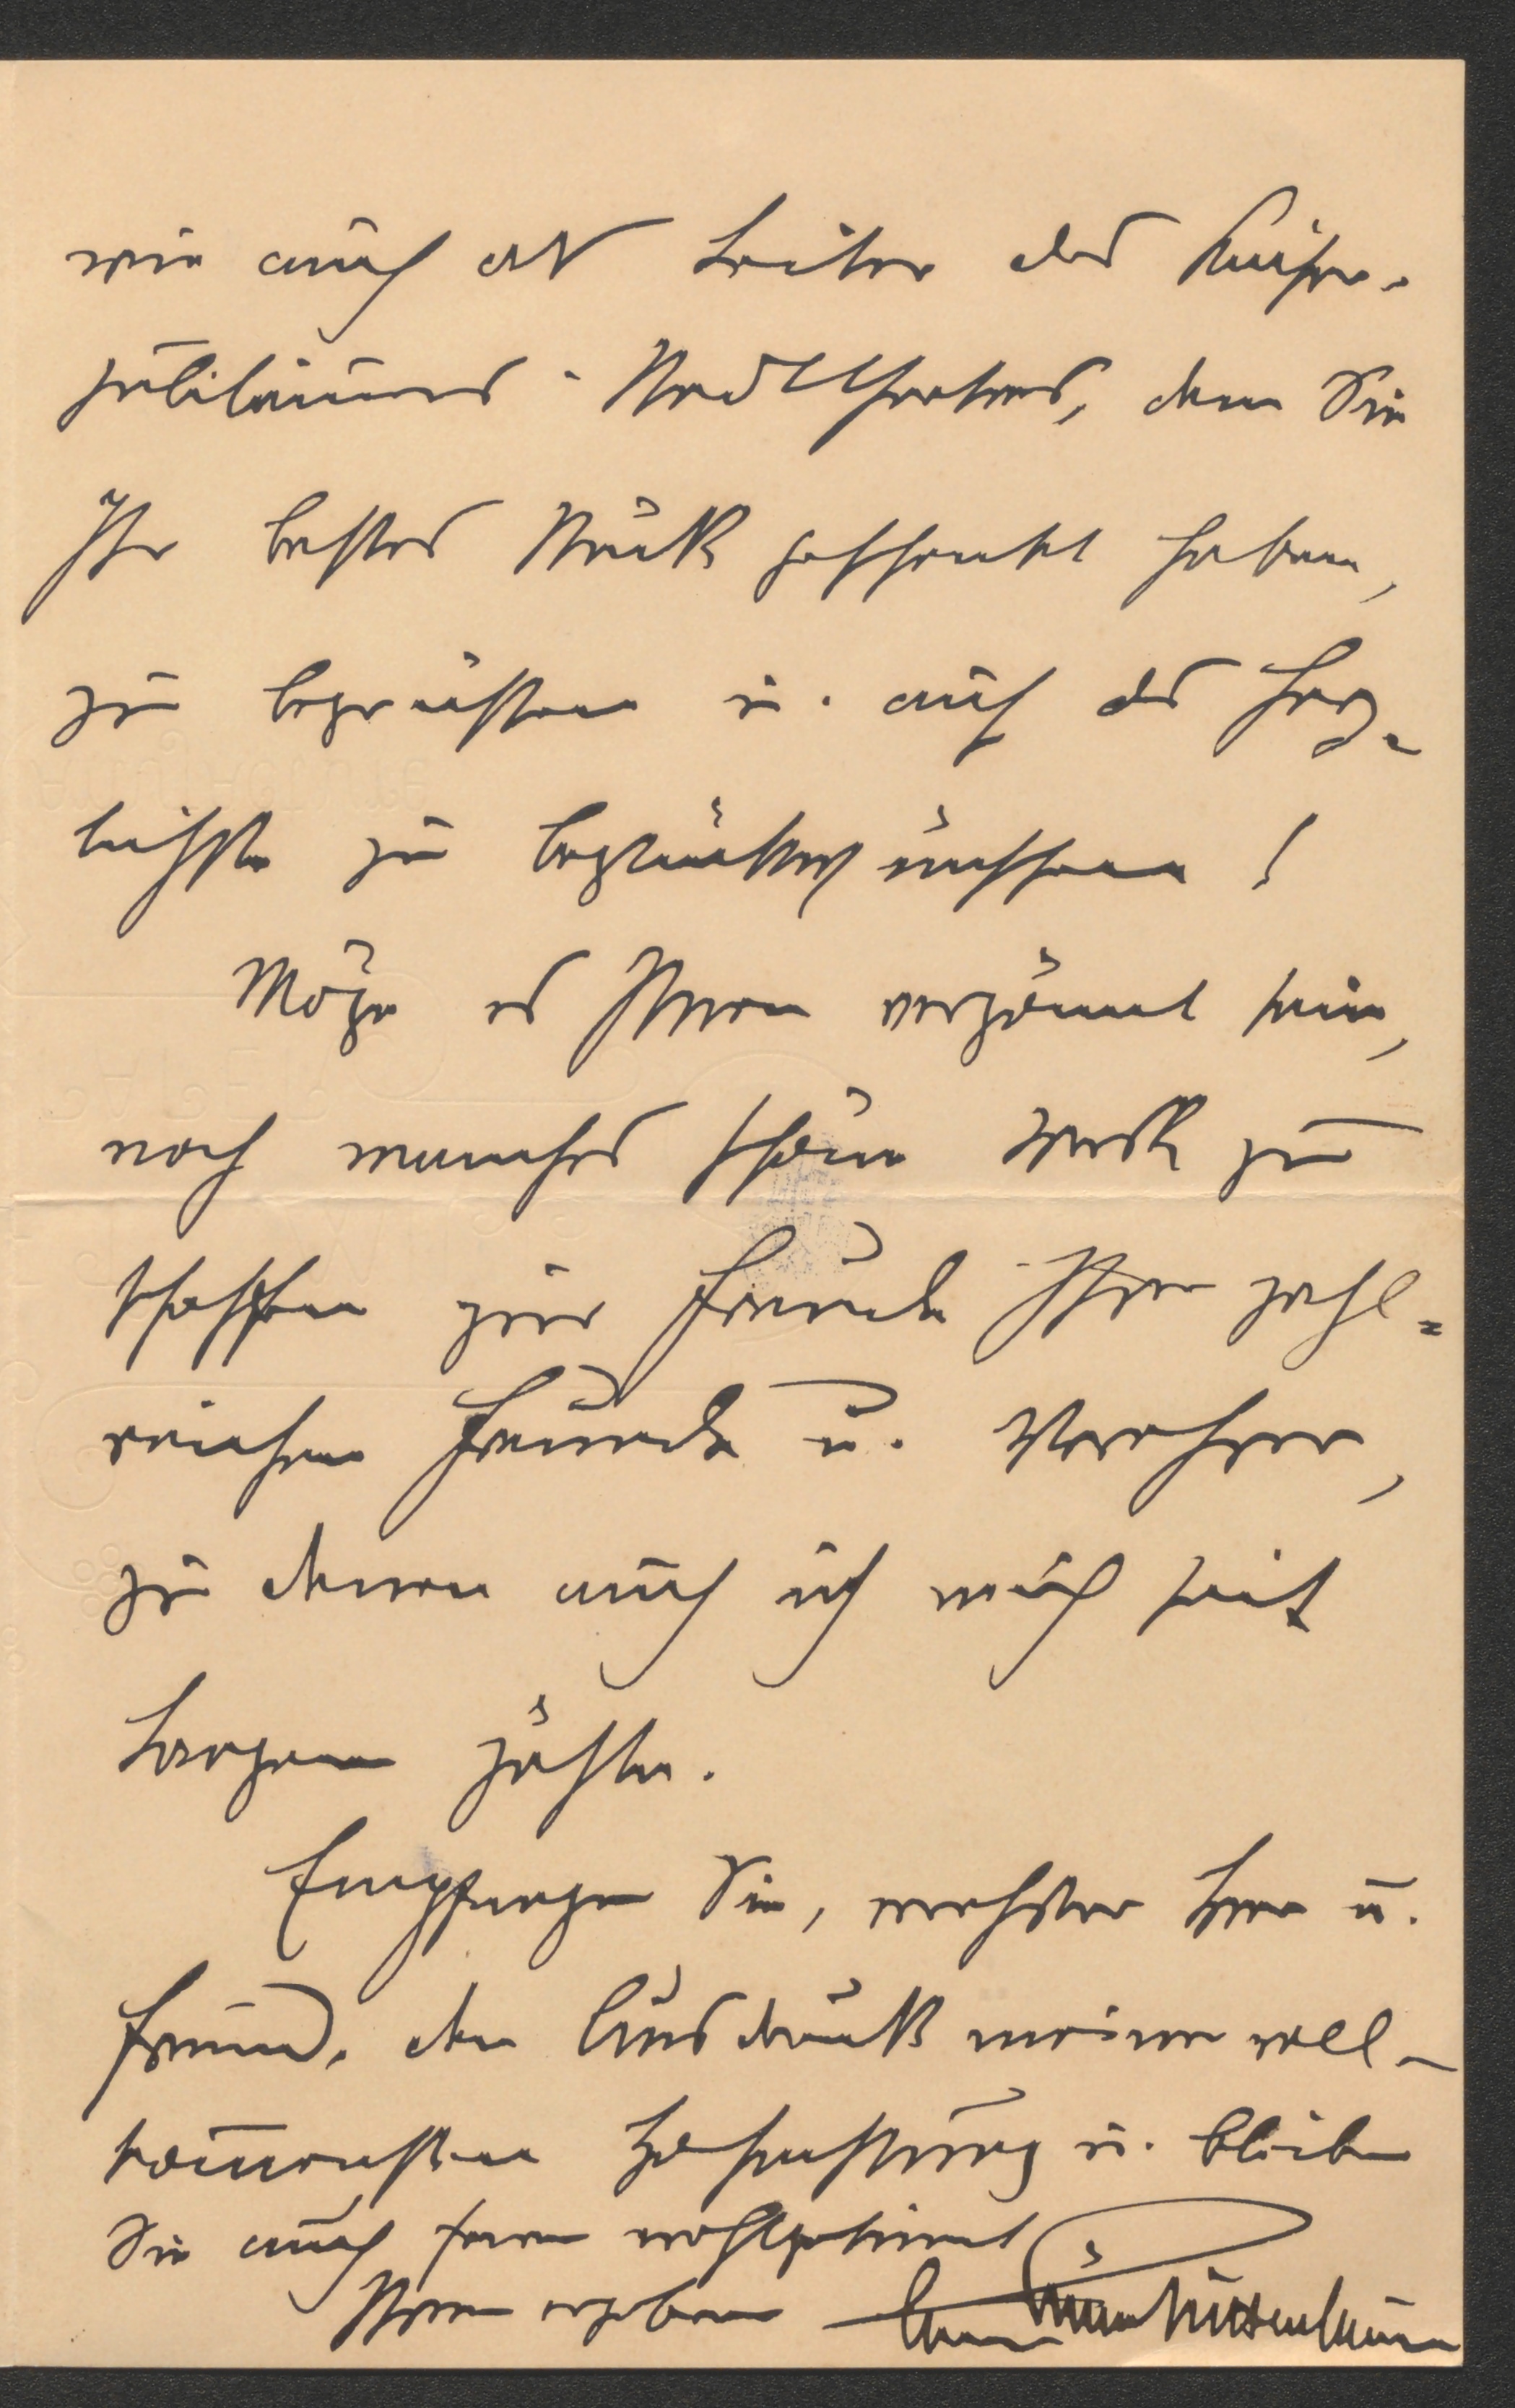 wie auch als Leiter des Kaiser-
jubiläums-Stadttheaters, dem Sie
Ihr bestes Stück geschenkt haben,
zu begrüßen u. auf das Herz-
lichste zu beglückwünschen!
Möge es Ihnen vergönnt sein,
noch manches schöne Werk zu
schaffen zur Freude Ihrer zahl=
reichen Freunde u. Verehrer,
zu denen auch ich mich seit
Langem zähle.
Empfangen Sie, verehrter Herr u.
Freund, den Ausdruck meiner voll-
kommensten Hochachtung u. bleiben
Sie auch ferner wohlgesinnt
Ihrem ergebenen